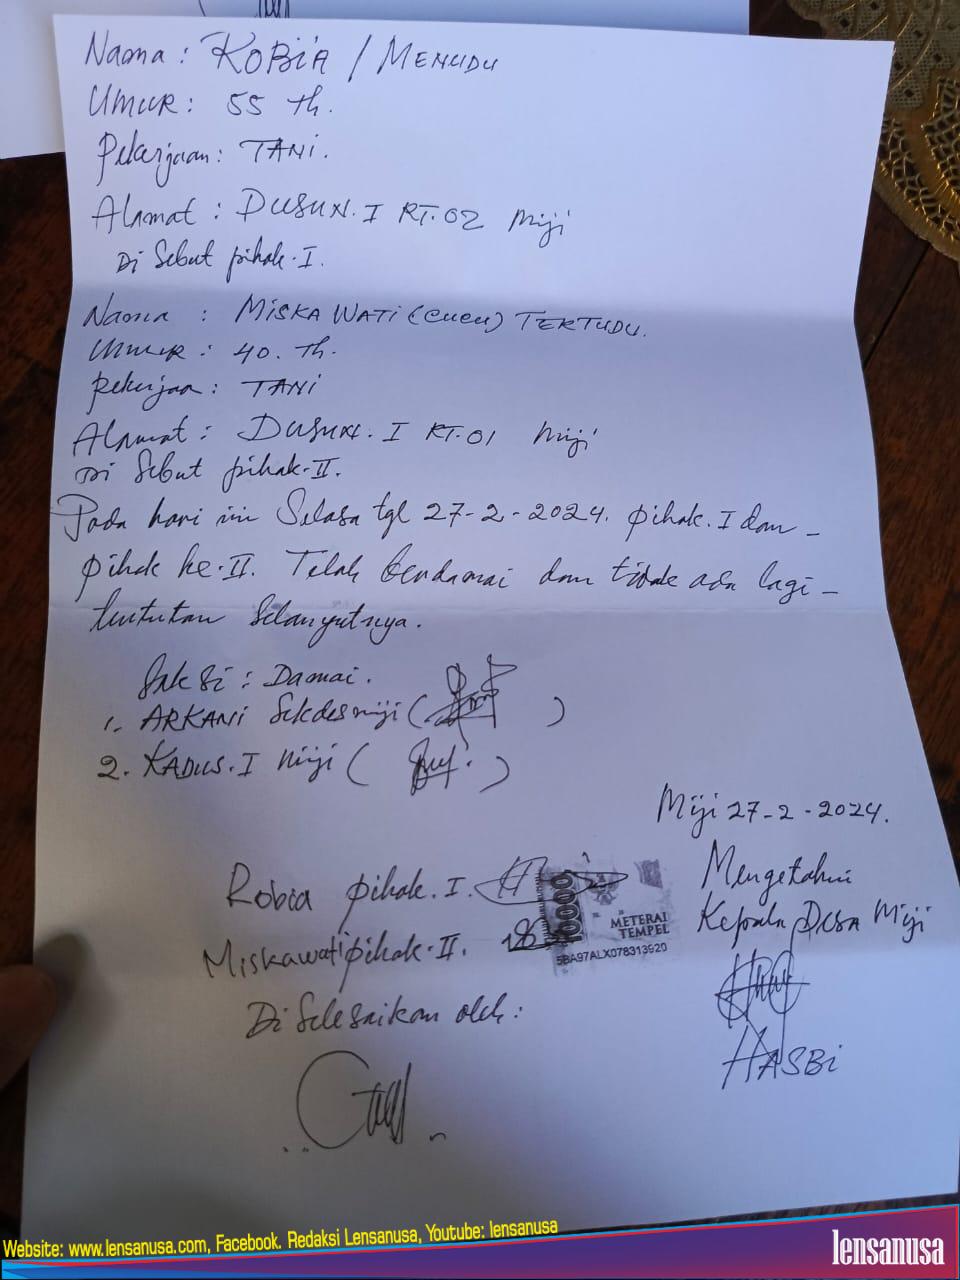 Nama : ROBiA / MENUDU
UMUR : 55 th.
Pekerjaan : TANi.
Alamat : DUSUN. I RT.02 Miji
Di Sebut pihak.I.
Nama : MiSKA WATi (CUCU) TERTUDU.
Umur : 40. Th.
Pekerjaa : TANi
Alamat : DUSUN. I RT.01 Miji
Di Sebut pihak.II.
Pada hari ini Selasa tgl 27-2-2024. pihak.I dan
pihak ke.II. Telah berdamai dan tidak ada lagi
tuntutan Selanjutnya.
Saksi : Damai.
1. ARKANi Sekdes miji ( )
2. KADUS.I Miji ( )
Miji 27-2-2024.
Mengetahui
Kepala DESA Miji
Robia pihak.I.
Miskawati pihak.II.
10000
METERAI
TEMPEL
5BA97ALX078313920
Di Selesaikan oleh :
HASBi
Website: www.lensanusa.com, Facebook. Redaksi Lensanusa, Youtube: lensanusa
lensanusa